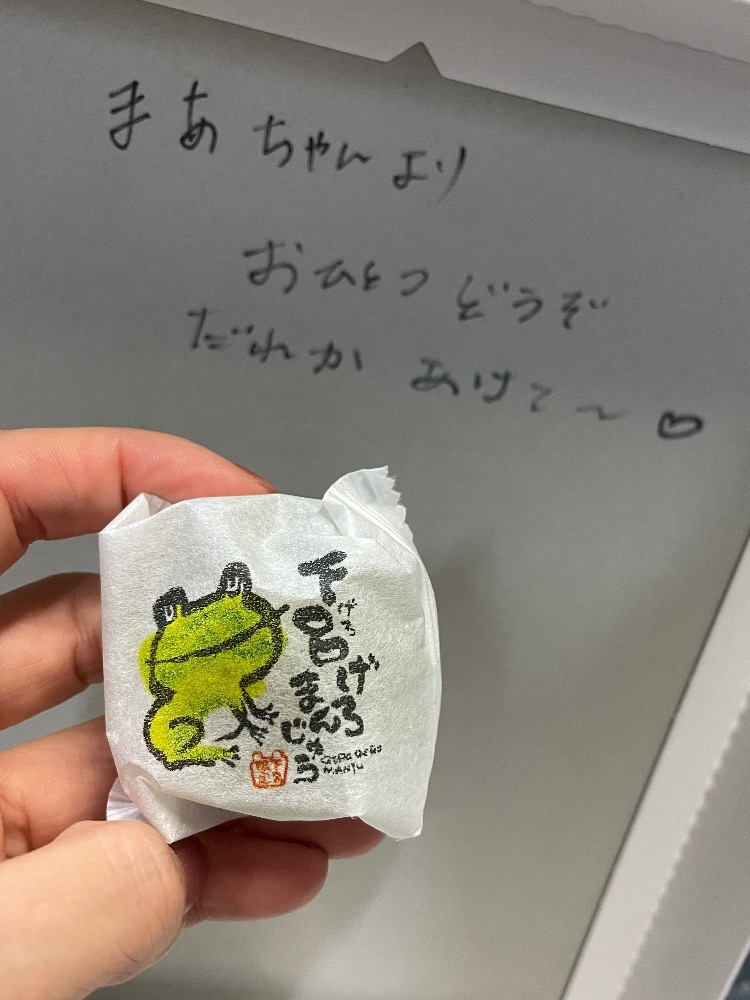 まあちゃんより
おひとつどうぞ
だれかあけて〜♡
下呂
げろ
げろ
まんじゅう
GERO GERO
MANJU